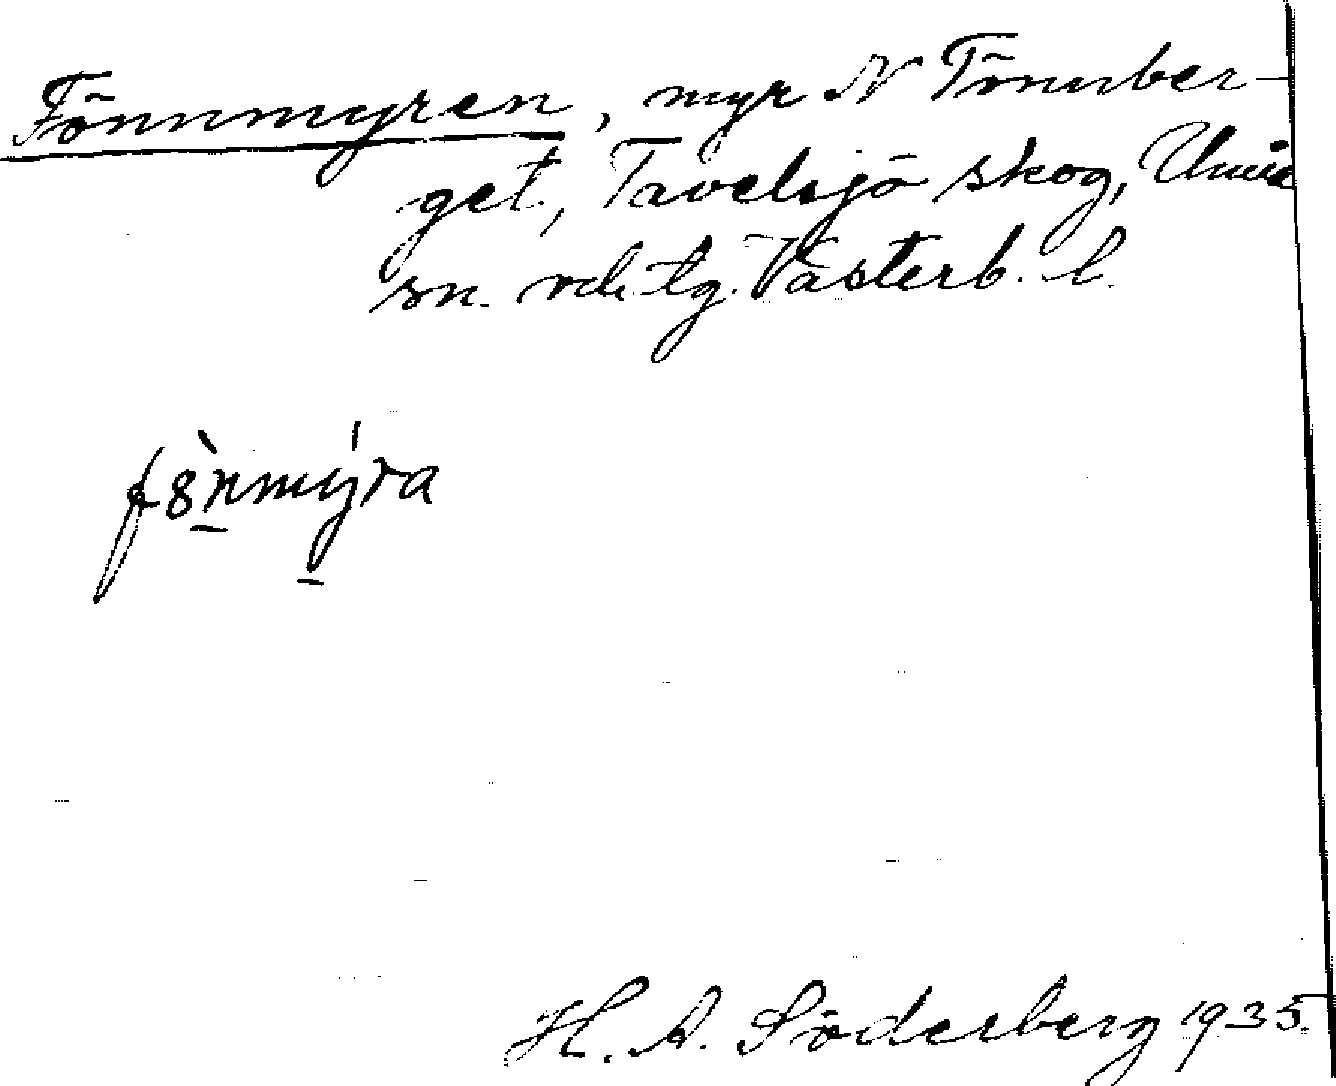 Fönnmyren, myr N Tönnber-
get, Tavelsjö skog, Umeå
sn. o. tg. Västerb. l.
f8̀nmýra
H. A. Söderberg 1935.